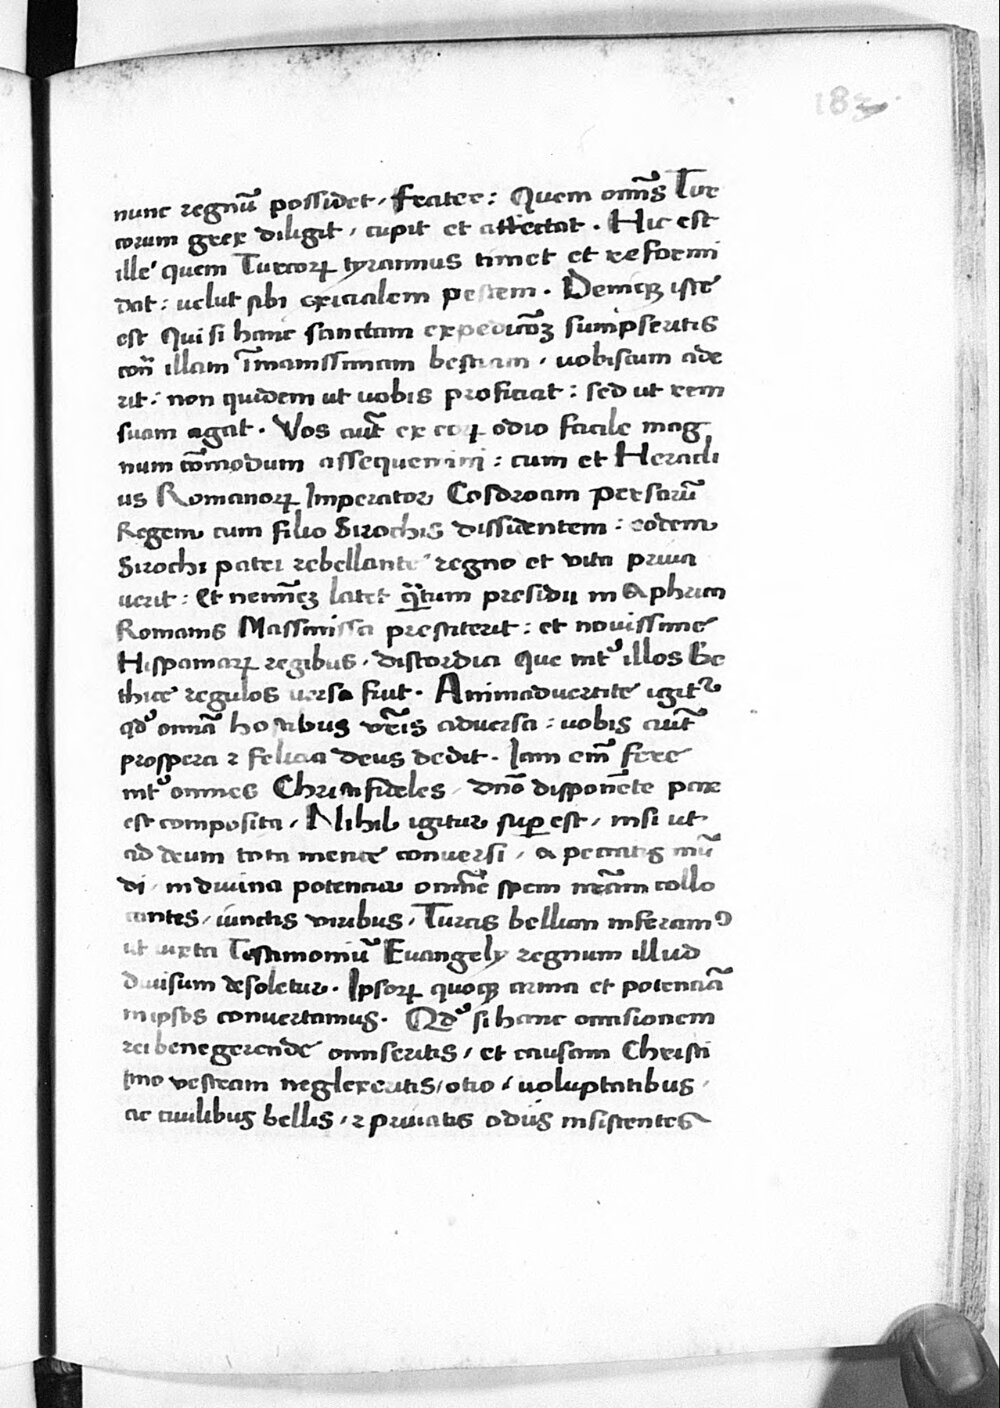 183
nunc regnū possidet, frater: Quem omēs Tur
corum grex diligit, cupit et affectat. Hic est
ille quem Turcoꝝ tyrannus timet et reformi
dat: uelut sibi exicialem pestem. Deniqꝫ iste
est Qui si hanc sanctam expedicōꝫ sumpseritis
cōn illam īmanissimam bestiam, uobiscum ade
rit: non quidem ut uobis proficiat: sed ut rem
suam agat. Vos aut̄ ex eoꝝ odio facile mag
num cōmodum assequemini: cum et Heracli
us Romanoꝝ Imperator Cosdroam Persarū
Regem cum filio Sirochis dissidentem: eodem
Sirochi patri rebellante regno et vita priua
uerit: Et neminēꝫ latet qᷓtum presidii in Aphrica
Romanis Massinissa prestiterit: et nouissime
Hispaniaꝝ regibus, discordia Que int᾽ illos Be
thice regulos uersa fiut. Animaduertite igit᷑
qd᾽ omnīa hostibus vr̄is aduersa: uobis aut̄
prospera ⁊ felicia deus dedit. Iam em̄ fere
int᾽ omnes Christifideles, dnō disponēte pax
est composita, Nihil igitur suꝑest, nisi ut
ad deum tota mente conuersi, a peccatis mū
di, in diuina potencia omnē spem nr̄am collo
cantes, iunctis viribus, Turcis bellum inferamꝰ
ut iuxta Testimoniū Euangely regnum illud
diuisum desoletur. Ipsoꝝ quoqꝫ arma et potenciā
in ipsos conuertamus. Qd᾽ si hanc occasionem
rei bene gerende omiseritis, et causam Christi
imo vestram neglexeritis, otio ⁊ uoluptatibus,
ac ciuilibus bellis, ⁊ priuatis odiis insistentes